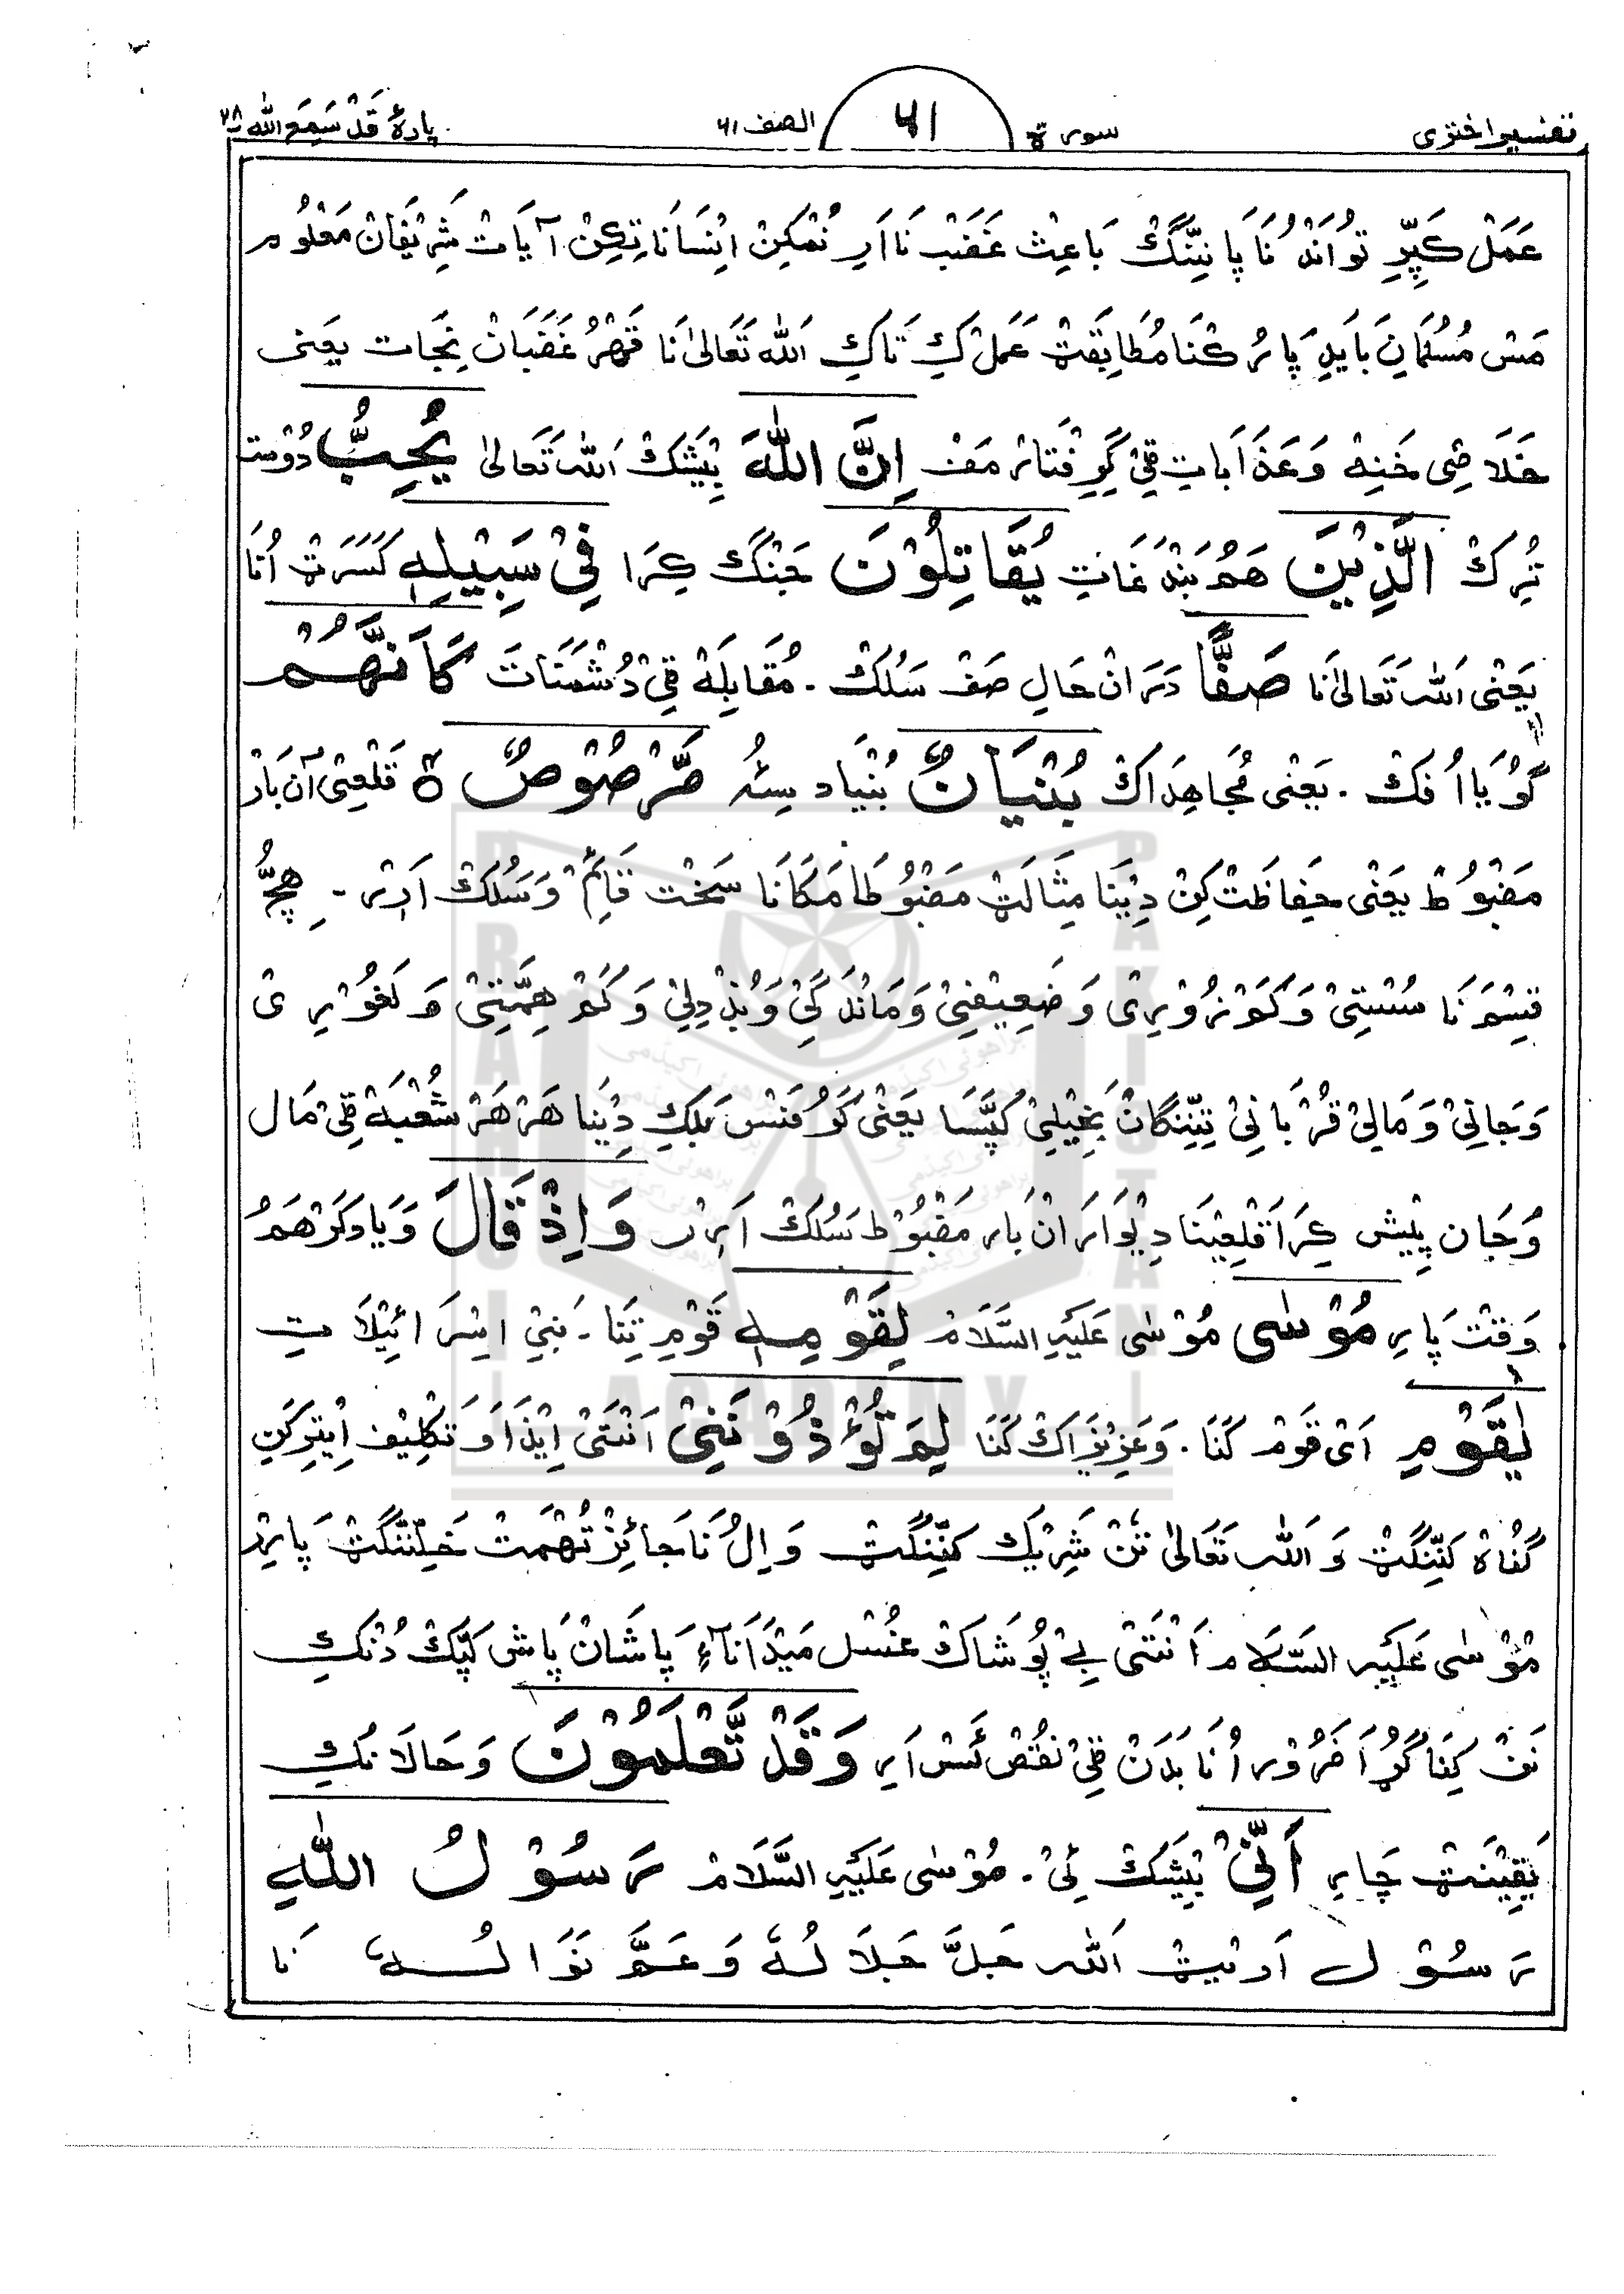 تفسیر اختری سورۃ ٦١ الصف ٦١ پارۂ قَدْ سَمِعَ اللہ ٢٨
عَمَلْ کَپِّرِ تَو اَنْدُنَا پَاننِّنگْ بَاعِثْ غَضَبْ نَا اَرِ نُمْکِنْ اِنْسَانَا تِکِنْ آیَاتْ شَرِیْفَانْ مَعْلُوْم
مَسْ مُسْلِمَانِ بَایَدِ پَارُ کُنَا مُطَابِقَتْ عَمَلْ کِ تَاکِ اَللہ تَعَالیٰ نَا قَہْرُ غَضَبَانْ نِجَات یَعنی
خَلَاصِی خَنِہْ وَ عَذَابَاتِ قِیْ گِرِفْتَار مَفْ اِنَّ اللّٰہَ بِیْشَکْ اَللہ تَعَالیٰ یُحِبُّ دُوْست
تُرِکْ الَّذِیْنَ ہَمُ بَنْدَغَاتِ یُقَاتِلُوْنَ جَنْگ کِرَا فِیْ سَبِیْلِہٖ کَسَرَتْ اُنَا
یَعْنِی اَللہ تَعَالیٰ نَا صَفًّا دَرَانْ حَالِ صَفْ سَلُکْ ۔ مُقَابِلَہْ قِیْ دُشْمَنَاتَ کَاَنَّھُمْ
گُوْیَا اُفکْ ۔ یَعْنِی مُجَاہِدَاکْ بُنْیَانٌ بُنْیَاد سِئُہ مَّرْصُوْصٌ ۃ قَلْعِئِی آن بَارْ
مَضْبُوْطْ یَعْنِی حِفَاظَتْ کِنْ دِیْنَا مِثَالَتْ مَضْبُوْطَا مَکَانَا سَخْت قَائِمْ وَ سَلُکْ اَرِر ۔ ہِچُّ
قِسْمَنَا سُسْتِیْ وَ کَمْزُوْرِیْ وَ ضَعِیْفِیْ وَ مَانْدَگِیْ وَ بُذْدِلِیْ وَ کَمْ ہِمَّتِیْ وَ لَغُوْرِیْ
وَ جَانِیْ وَ مَالِیْ قُرْبَانِیْ تِنِّنگَانْ بَخِیْلِیْ کَپَّسَا یَعْنِی گَوْ مَنْسْ بَلکِ دِیْنَا ہَرْ ہَرْ شُعْبَہْ قِیْ مَال
وَ جَان پِیْش کِرَا قَلْعِیْنَا دِیْوَارَانْ بَار مَضْبُوْط سَلُکْ اَرِر وَاِذْ قَالَ وَ یَاد کَرْ ہَمُ
وَقْتْ پَارِ مُوْسٰی مُوْسٰی عَلَیْہِ السَّلَامْ لِقَوْمِہٖ قَوْمِ تِنَا ۔ بَنِیْ اِسْرَائِیْلَاتِ
یٰقَوْمِ اَیْ قَوْمْ کَنَا ۔ وَ عَزِیْزَاکْ کَنَا لِمَ تُؤْذُوْنَنِیْ اَنْتَئِی اِیْذَا وَ تَکْلِیْف اِیْتِرِکَنِ
گُنَاہْ کَنِّنگَتْ وَ اَللہ تَعَالیٰ تَنْ شَرِیْک کَنِّنگَتْ وَ اِلْ نَاجَائِزْ تُہْمَتْ خَلِنِّنگَتْ پَارِر
مُوْسٰی عَلَیْہِ السَّلَام اَنْتَئِی بِے پُوْشَاکْ غُسْل مَیْدَانَاءِ پَاشَانْ پَاشِ کَپَکْ دُنْکِ
نَنْ کِنَا گُرَا ضَرُوْر اُنَا بَدَنْ قِیْ نَقْص ئَسْ اَرِ وَ قَدْ تَّعْلَمُوْنَ وَ حَالَانکِ
یَقِیْنَتْ چَارِ اَنِّیْ بِیْشَکْ ئِیْ ۔ مُوْسٰی عَلَیْہِ السَّلَامْ رَسُوْلُ اللّٰہِ
رَسُوْل اَرِیْٹ اَللہ جَلَّ جَلَالُہٗ وَ عَمَّ نَوَالُہٗ نَا